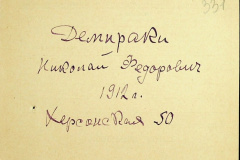 331
Демираки
Николай Федорович
1912 г.
Херсонская 50